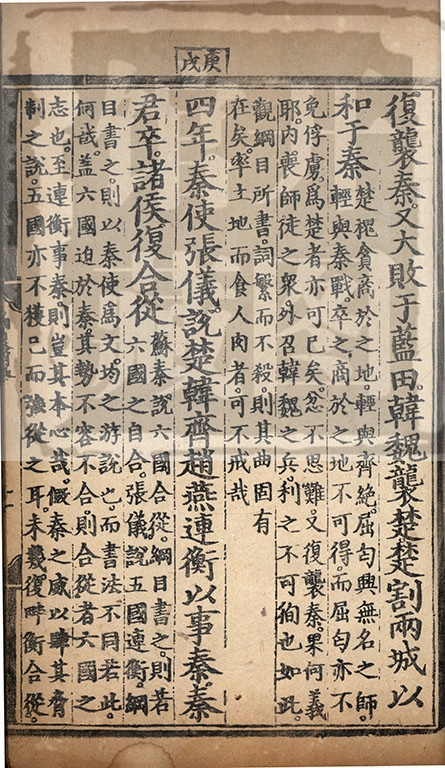 庚戌
復襲秦。又大敗于藍田。韓魏襲楚。楚割兩城以
和于秦
楚懷貪商於之地。輕與齊絕。屈匄興無名之師。
輕與秦戰。卒之。商於之地不可得。而屈匄亦不
免俘虜。爲楚者亦可已矣。忿不思難。又復襲秦。果何義
耶。內喪師徒之衆。外召韓魏之兵。利之不可殉也如此。
觀綱目所書。詞繁而不殺。則其曲固有
在矣。率土地而食人肉者。可不戒哉
四年。秦使張儀。說楚韓齊趙燕連衡以事秦。秦
君卒。諸侯復合從
蘇秦說六國合從。綱目書之。則若
六國之自合。張儀說五國連衡。綱
目書之。則以秦使爲文。均之游說也。而書法不同若此。
何哉。蓋六國迫於秦。其勢不容不合。則合從者六國之
志也。至連衡事秦。則豈其本心哉。秦之威以肆其脅
制之說。五國亦不獲已而強從之耳。未幾復畔衡合從。